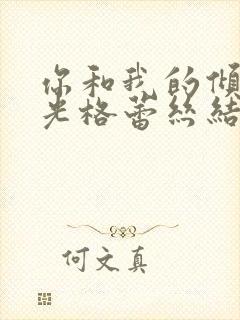 你和我的傾
光格蕾絲結
何文真